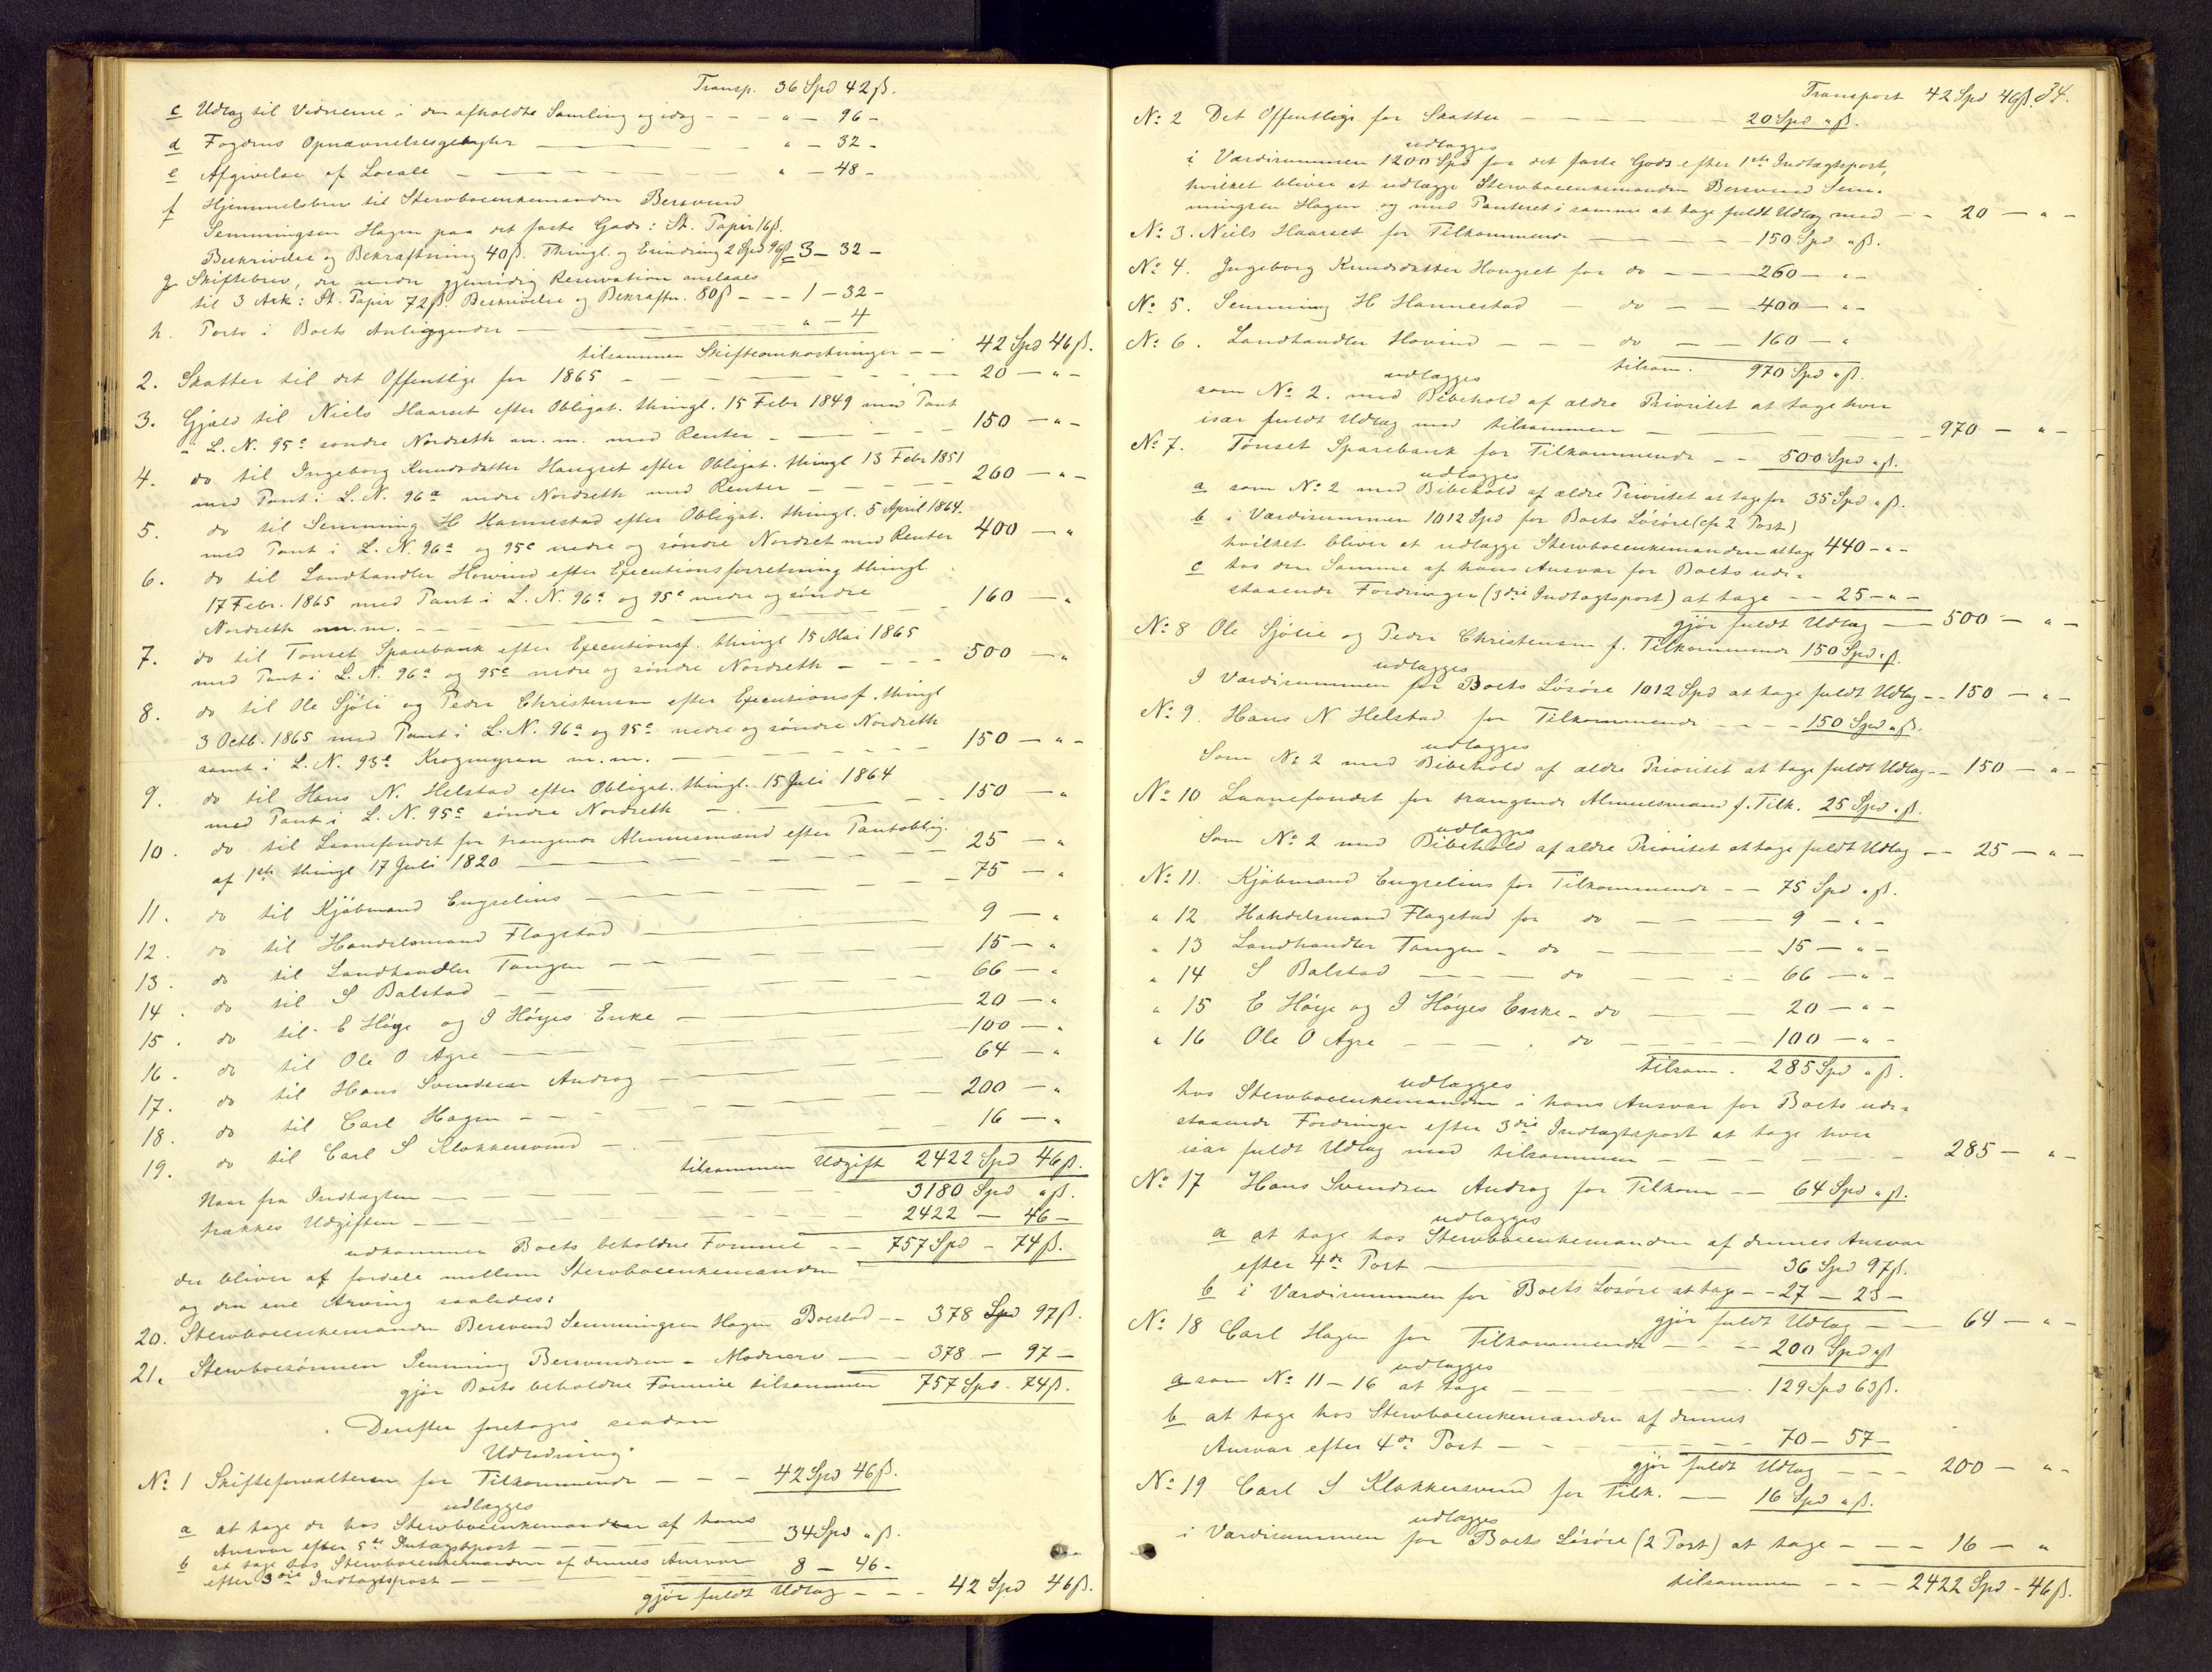 Transp. 36 Spd 42 ß.
c Udlæg til Vidnerne i den afholdte Samling og idag - - - " - 96 -
d Fogdens Opnævnelsesgebyhr — — — " - 32 -
e Afgivelse af Locale — — — " - 48 -
f Hjemmelsbrev til Stervboenkemanden Bersvend
Semmingsen Hagen paa det faste Gods: St. Papir 16 ß.
Beskrivelse og Bekræftning 40 ß. Thingl. og Erindring 2 Spd 96 ß = 3 - 32 -
g Skiftebrev, der under gjensidig Reservation ansl aaes
til 3 Ark: St. Papir 72 ß. Beskrivelse og Bekræftn. 80 ß - - - 1 - 32 -
h. Porto i Boets Anliggender — — — " - 4
tilsammen Skifteomkostninger — — 42 Spd 46 ß.
2. Skatter til det Offentlige for 1865 — — — 20 — " -
3. Gjæld til Niels Haarset efter Obligat. thingl. 15 Febr 1849 med Pant
i L. N. 95c søndre Nordseth m. m. med Renter - — — 150 — " -
4. do til Ingeborg Knudsdatter Haugset efter Obligat. thingl 13 Febr 1851
med Pant i L. N. 96a nedre Nordseth med Renter — — 260 — " -
5. do til Semming H Hannestad efter Obligat. thingl. 5 April 1864.
med Pant i L. N. 96a og 95c nedre og søndre Nordset med Renter 400 — "
6. do til Landhandler Hovind efter Executionsforretning thingl.
17 Febr. 1865 med Pant i L. N. 96a og 95c nedre og søndre
Nordseth m. m. — — — 160 — "
7. do til Tønset Sparebank efter Executionsf. thingl 15 Mai 1865
med Pant i L. N. 96a og 95c nedre og søndre Nordseth — — 500 — "
8. do til Ole Sjøli og Peder Christensen efter Executionsf. thingl
3 Octb. 1865 med Pant i L. N. 96a og 95c nedre og søndre Nordseth
samt i L. N. 93e Krogmyren m. m. — — — 150 — " -
9. do til Hans N. Helstad efter Obligat. thingl. 15 Juli 1864
med Pant i L. N. 95c søndre Nordseth — — 150 — "
10. do til Laanefondet for trængende Almuesmænd efter Pantoblig.
af 1ste thingl 17 Juli 1820 — — — 25 — "
11. do til Kjøbmand Engselius — — — 75 — "
12. do til Handelsmand Flagstad — — — 9 — "
13. do til Landhandler Tangen — — — 15 — "
14. do til S Balstad — — — 66 — "
15. do til E Høye og I Høyes Enke — — — 20 — "
16. do til Ole O Agre — — — 100 — "
17. do til Hans Svendsen Androg — — — 64 — "
18. do til Carl Hagen — — — 200 — "
19. do til Carl S Klokkersvend — — — 16 — "
tilsammen Udgift 2422 Spd 46 ß.
Naar fra Indtægten — — — 3180 Spd " ß.
trækkes Udgiften — — — 2422 — 46 -
udkommer Boets beholdne Formue — — 757 Spd - 74 ß.
der bliver at fordele mellem Stervboenkemanden
og den ene Arving saaledes:
20. Stervboenkemanden Bersvend Semmingsen Hagen Boeslod — — 378 Spd 97 ß.
21. Stervboesønnen Semming Bersvendsen - Mødrearv — — 378 — 97 -
gjør Boets beholdne Formue tilsammen 757 Spd - 74 ß.
Derefter foretages saadan
Udlodning:
No 1 Skifteforvalteren for Tilkommende — — — 42 Spd 46 ß.
udlægges
a at tage de hos Stervboenkemanden af hans
Ansvar efter 5te Indtægtspost — — 34 Spd " ß.
b at tage hos Stervboenkemanden af dennes Ansvar
efter 3die Indtægtspost — — 8 — 46 -
gjør fuldt Udlæg — — — 42 Spd 46 ß.
Transport 42 Spd 46 ß. 34.
No 2 Det Offentlige for Skatter — — — 20 Spd " ß.
udlægges
i Værdisummen 1200 Spd for det faste Gods efter 1ste Indtægtspost,
hvilket bliver at udlægge Stervboenkemanden Bersvend Sem-
mingsen Hagen og med Panteret i samme at tage fuldt Udlæg med — — 20 — " -
No 3. Niels Haarset for Tilkommende — — — 150 Spd " ß.
No 4. Ingeborg Knudsdatter Haugset for do — — — 260 — " -
No 5. Semming H Hannestad — do — — 400 — " -
No 6. Landhandler Hovind — — — do — — 160 — "
tilsam. 970 Spd " ß.
udlægges
som No 2. med Bibehold af ældre Prioritet at tage hver
især fuldt Udlæg med tilsammen — — — 970 — " -
No 7. Tønset Sparebank for Tilkommende — — 500 Spd " ß.
udlægges
a som No 2 med Bibehold af ældre Prioritet at tage for 35 Spd " ß.
b i Værdisummen 1012 Spd for Boets Løsøre (cfr 2 Post)
hvilket bliver at udlægge Stervboenkemanden at tage 440 - " -
c hos den Samme af hans Ansvar for Boets ude-
staaende Fordringer (3die Indtægtspost) at tage — — 25 - " -
gjør fuldt Udlæg — — 500 — " -
No 8 Ole Sjølie og Peder Christensen f. Tilkommende 150 Spd " ß.
udlægges
I Værdisummen for Boets Løsøre 1012 Spd at tage fuldt Udlæg - - 150 — " -
No 9. Hans N Helstad for Tilkommende — — — 150 Spd " ß.
udlægges
Som No 2 med Bibehold af ældre Prioritet at tage fuldt Udlæg - - 150 — " -
No 10 Laanefondet for trængende Almuesmænd f. Tilk. 25 Spd " ß.
udlægges
Som No 2 med Bibehold af ældre Prioritet at tage fuldt Udlæg — — 25 — " -
No 11. Kjøbmand Engselius for Tilkommende — — 75 Spd " ß.
" 12 Handelsmand Flagstad for do — — — 9 — " -
" 13 Landhandler Tangen - do — — — 15 — " -
" 14 S Balstad — — — do — — — 66 — " -
" 15 E Høye og I Høyes Enke - do — — 20 — " -
" 16 Ole O Agre — — — do — — — 100 — " -
tilsam. 285 Spd " ß.
udlægges
hos Stervboenkemanden i hans Ansvar for Boets ude-
staaende Fordringer efter 3die Indtægtspost at tage hver
især fuldt Udlæg med tilsammen — — — 285 — " -
No 17 Hans Svendsen Androg for Tilkom — — 64 Spd " ß.
udlægges
a at tage hos Stervboenkemanden af dennes Ansvar
efter 4de Post — — — 36 Spd 97 ß.
b i Værdisummen for Boets Løsøre at tage — — 27 — 23 -
gjør fuldt Udlæg — — 64 — " -
No 18 Carl Hagen for Tilkommende — — — 200 Spd " ß
udlægges
a som No 11 - 16 at tage — — — 129 Spd 63 ß.
b at tage hos Stervboenkemanden af dennes
Ansvar efter 4de Post — — — 70 — 57 -
gjør fuldt Udlæg — — — 200 — " -
No 19 Carl S Klokkersvend for Tilk. — — 16 Spd " ß.
udlægges
i Værdisummen for Boets Løsøre (2 Post) at tage — — — 16 — "
tilsammen — — — 2422 Spd - 46 ß.